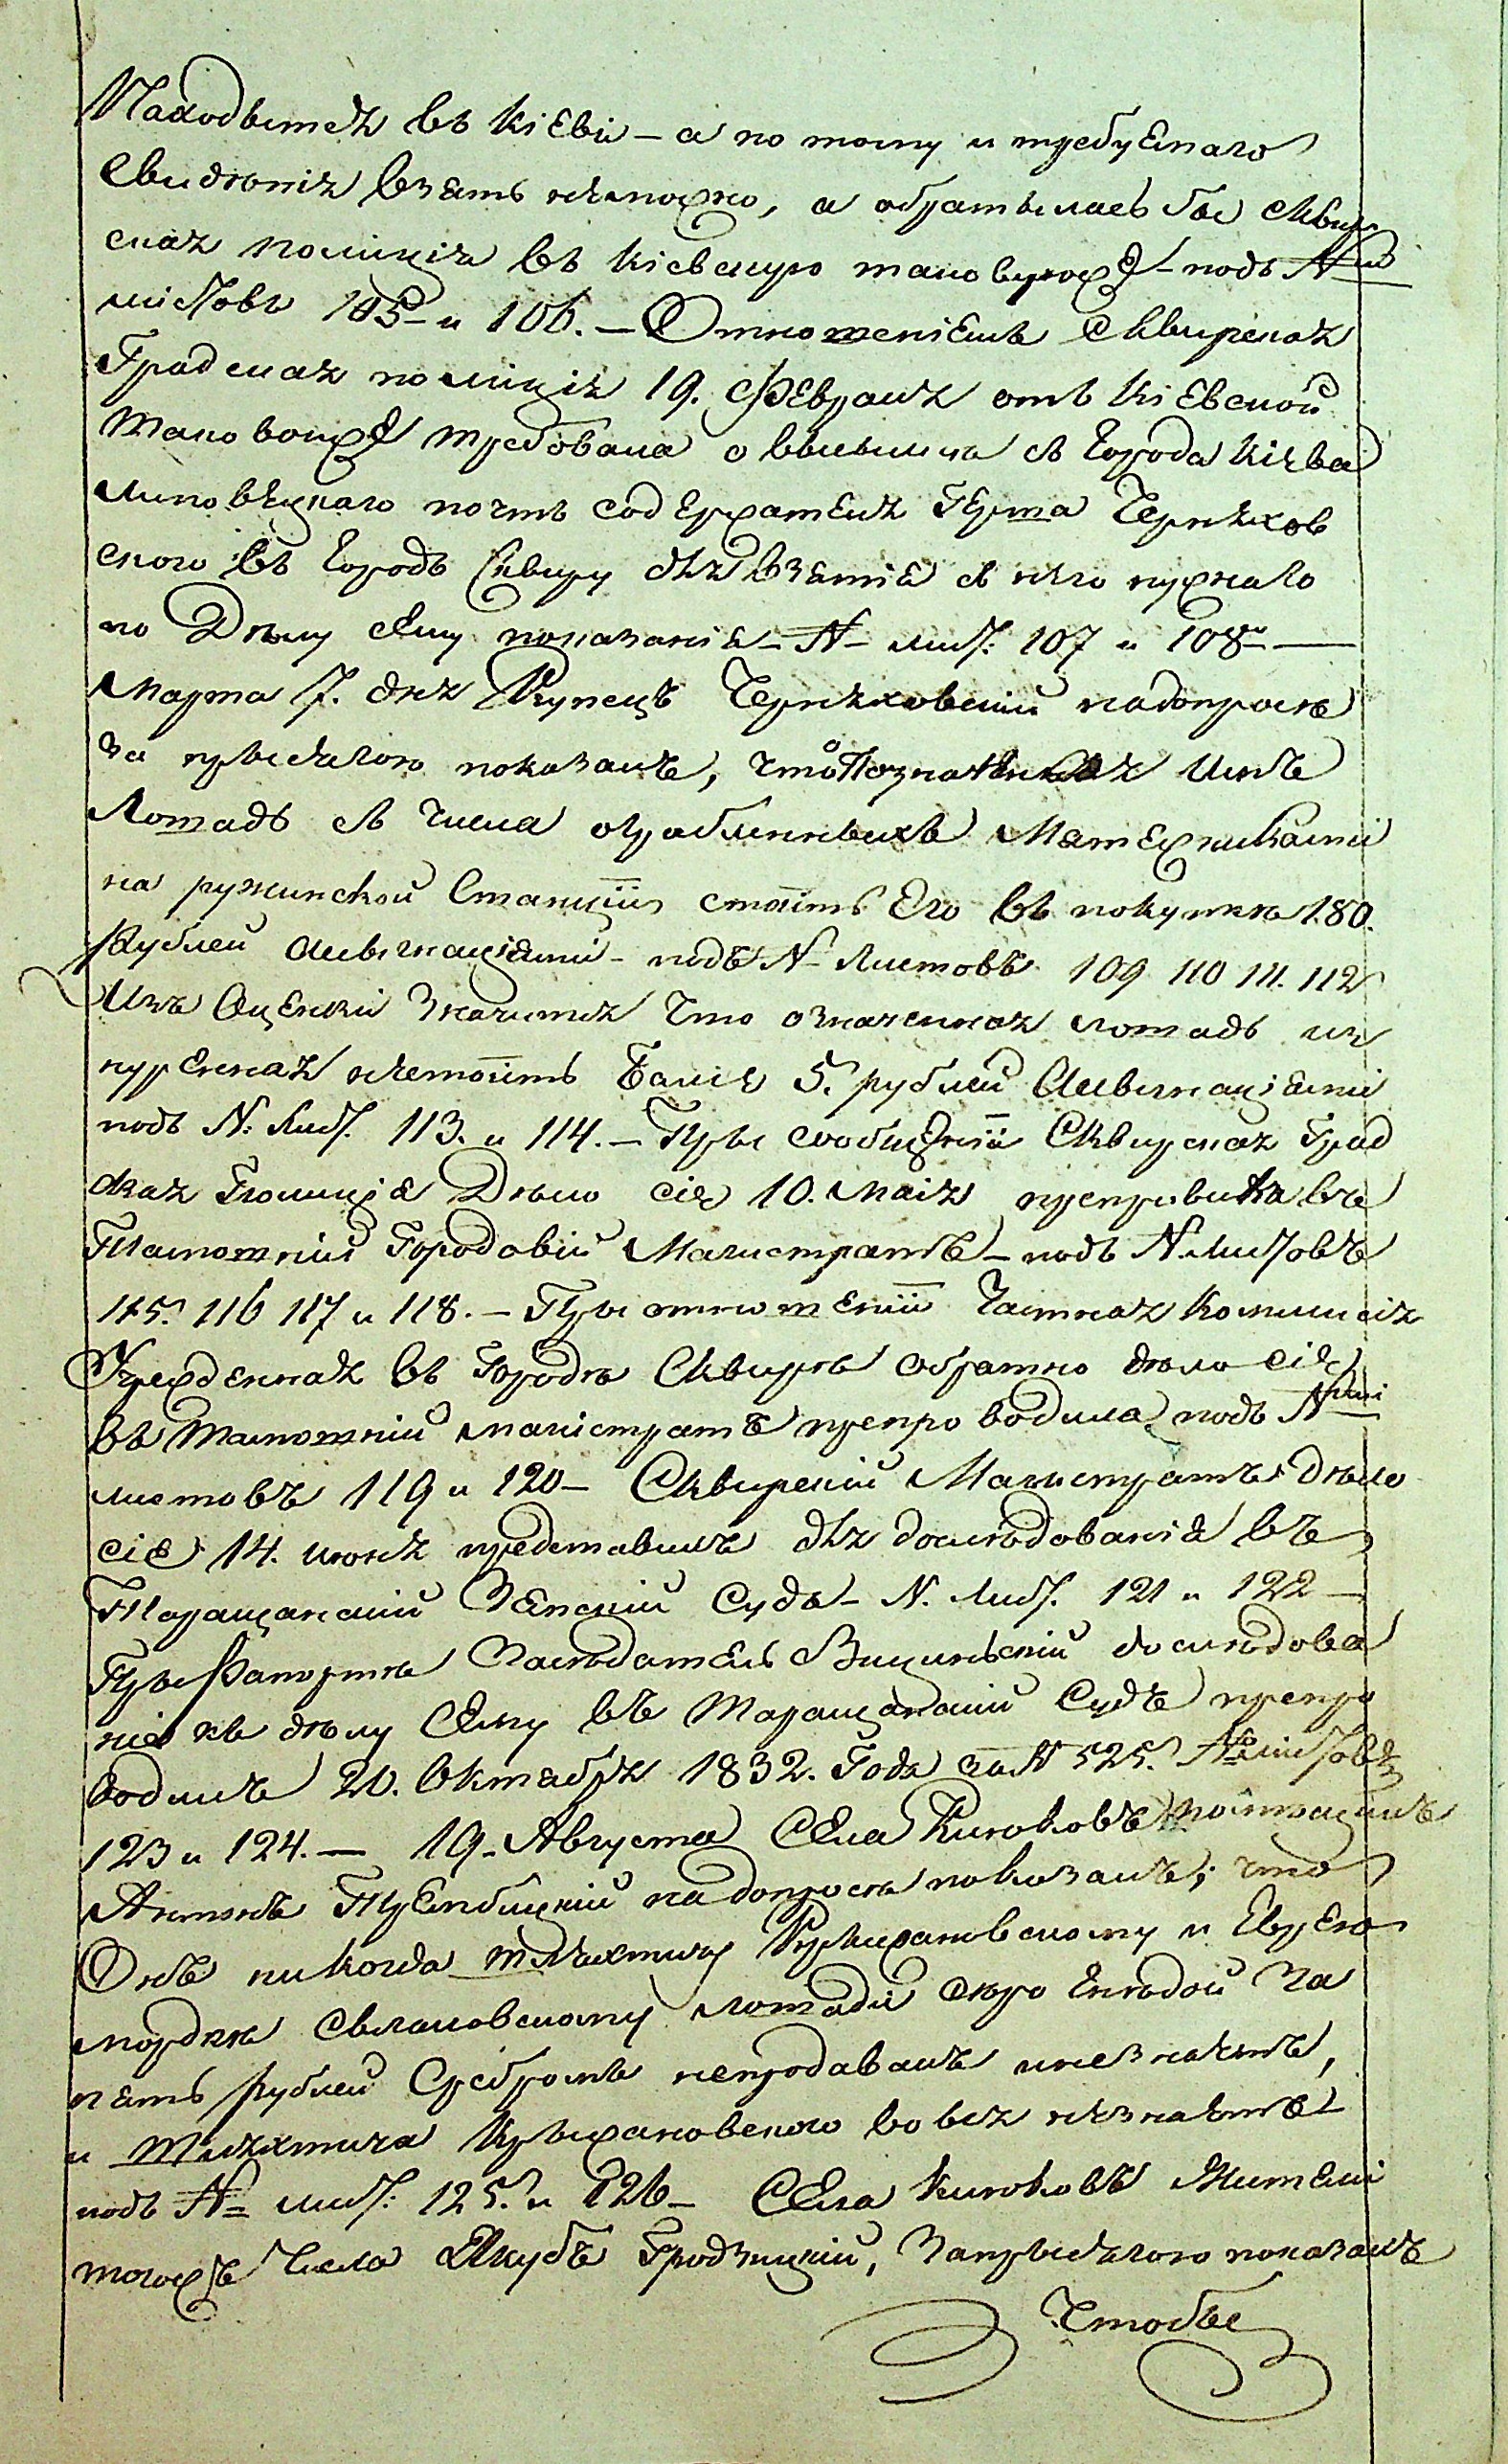 Находытся въ Кіеви – а по тому и требуемаго
Свидѣнія взять неможно, а обратылась бы Сквир
ская полиція въ Кіевскую таковуюжъ – подъ №ми
листовъ 105 и 106. – Отношеніемъ Сквирская
Градская полиція 19. Февраля отъ Кіевской
таковойжъ требовала о высылки съ города Кіева
липовецкаго почтъ содержателя Герша Черняхов
ского въ Городъ Сквиру для взятія съ него нужнаго
по Дѣлу сему показанія – № лист: 107 и 108 –
Марта 7. дня Купецъ Черняховскій надопросѣ
за присягою показалъ, что познатая имъ
Лошадь съ числа ограбленныхъ Мятежниками
на ружинской Станціи стоитъ Его въ покупкѣ 180.
Рублей Ассыгнаціями – подъ № Листовъ 109 110 111. 112
Изъ Оценки Значится что означенная лошадь из
нуренная нестоитъ Баліе 5. рублей Ассыгнаціями
подъ №: Лист. 113. и 114. – При сообщеніи Сквирская Град
ская Полиція Дѣло сіе 10. Маія препровила въ
Тамошній Городовій Магистратъ – подъ № Листовъ
115. 116 117 и 118. – При отношеніи Частная Коммисія
Учрежденная въ Городѣ Сквирѣ обратно дѣло сіе
въ тамошній магістратъ препроводила подъ №ми
листовъ 119 и 120 – Сквирскій Магистратъ Дѣло
сіе 14. июня представилъ для дослѣдованія въ
Таращанскій Земскій Судъ – №. Лист. 121 и 122 –
При Рапортѣ Засѣдатель дослѣдова
ніе къ дѣлу Сему въ Таращанскій Судъ препро
водилъ 20. Октября 1832. Года за № 525. № листовъ
123 и 124. – 19. Августа Села Килюковъ
Антонъ Трембицкій надопросѣ показалъ; что
Онъ никогда шляхтичу Крыжановскому и Еврею
мордкѣ лошади скро гнѣдой за
пять рублей Сребромъ непродавалъ и незнаетъ,
и Шляхтича Крыжановского вовся незнаетъ
подъ № лист: 125. и 126 – Села Житель
тогожъ Числа Якубъ Гродзицкій, Запрысягою показалъ
Чтобы